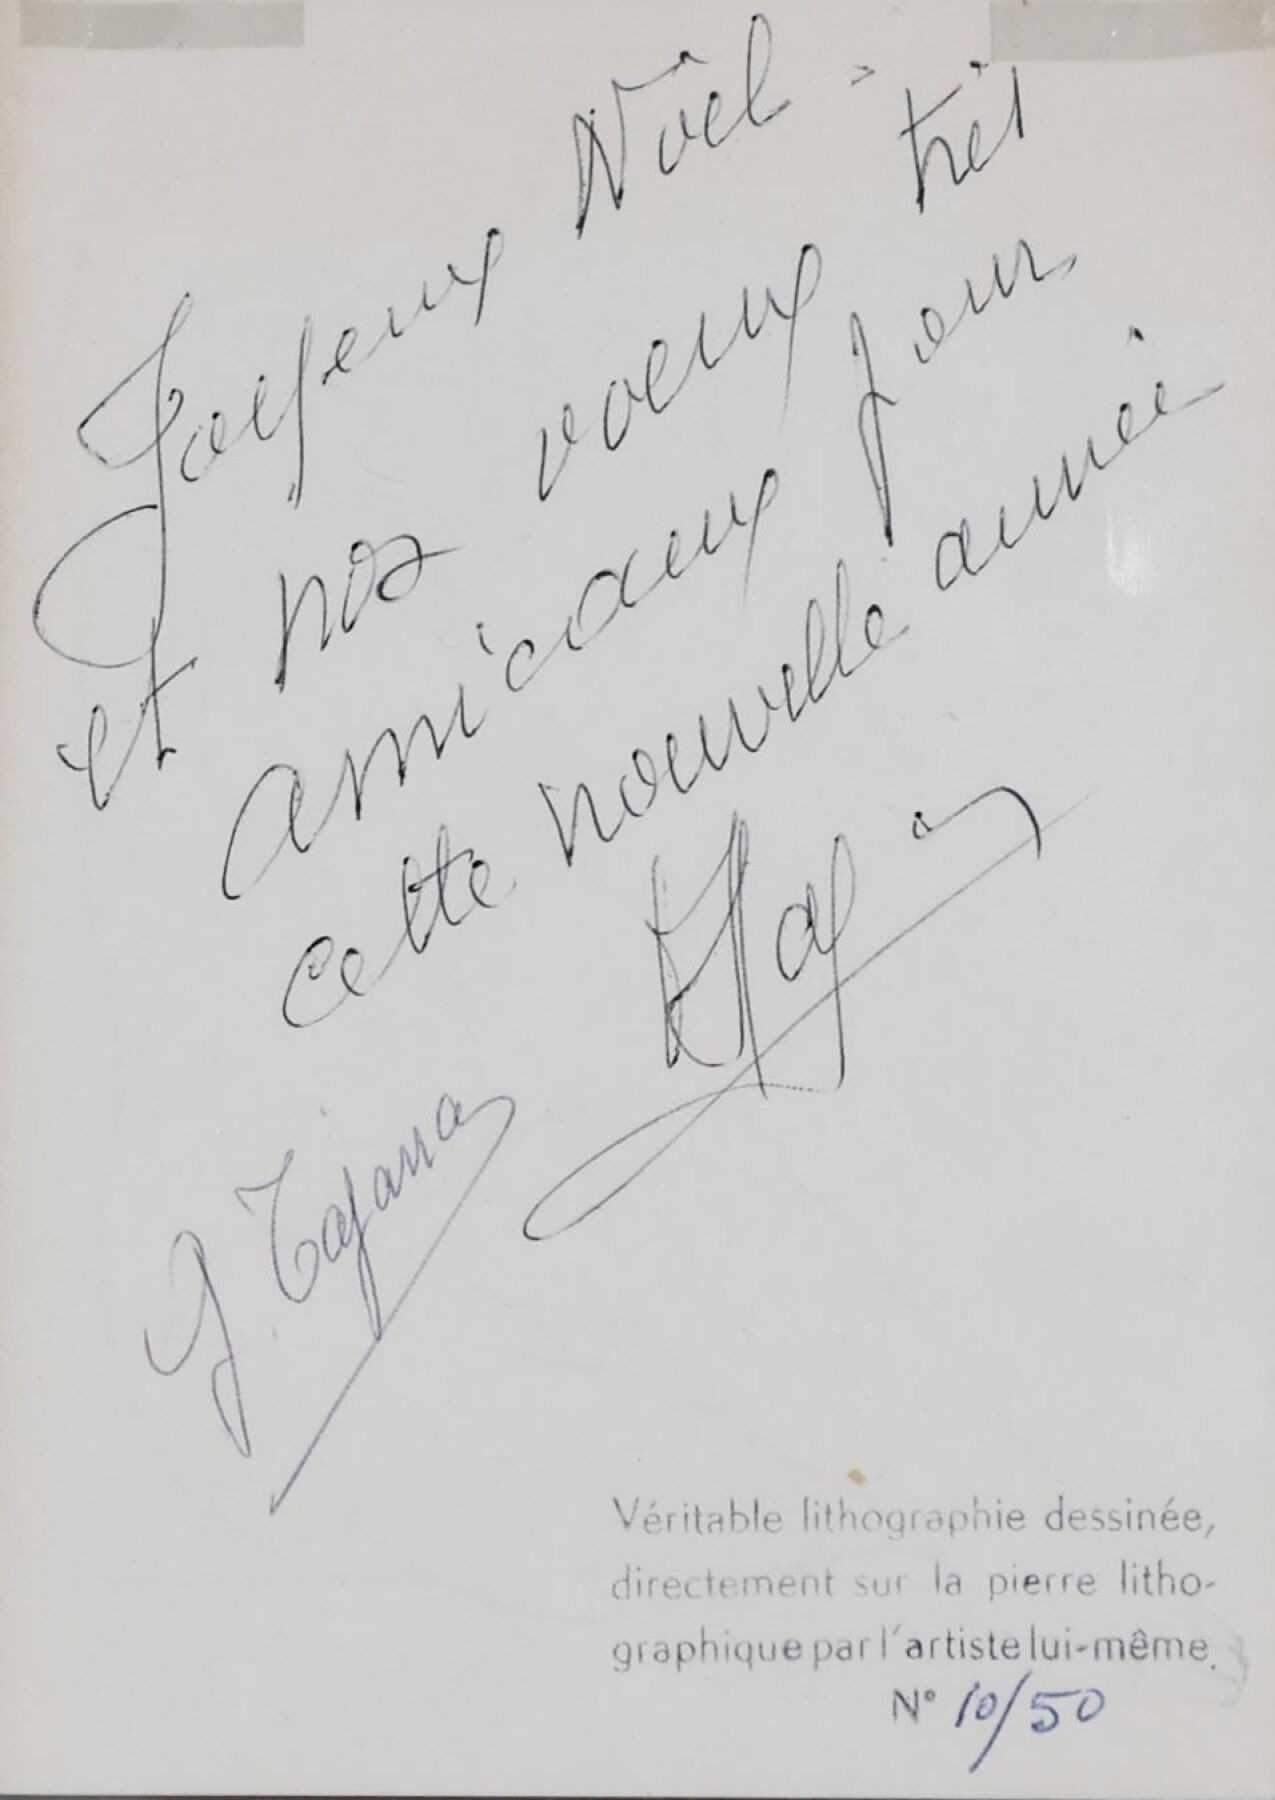 Joyeux Noël -
et nos voeux très
amicaux pour
cette nouvelle année
Véritable lithographie dessinée,
directement sur la pierre litho-
graphique par l'artiste lui-même.
N° 10/50